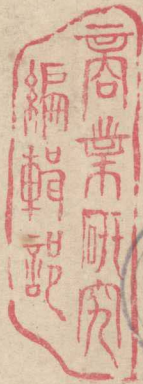 商業研究
編輯部